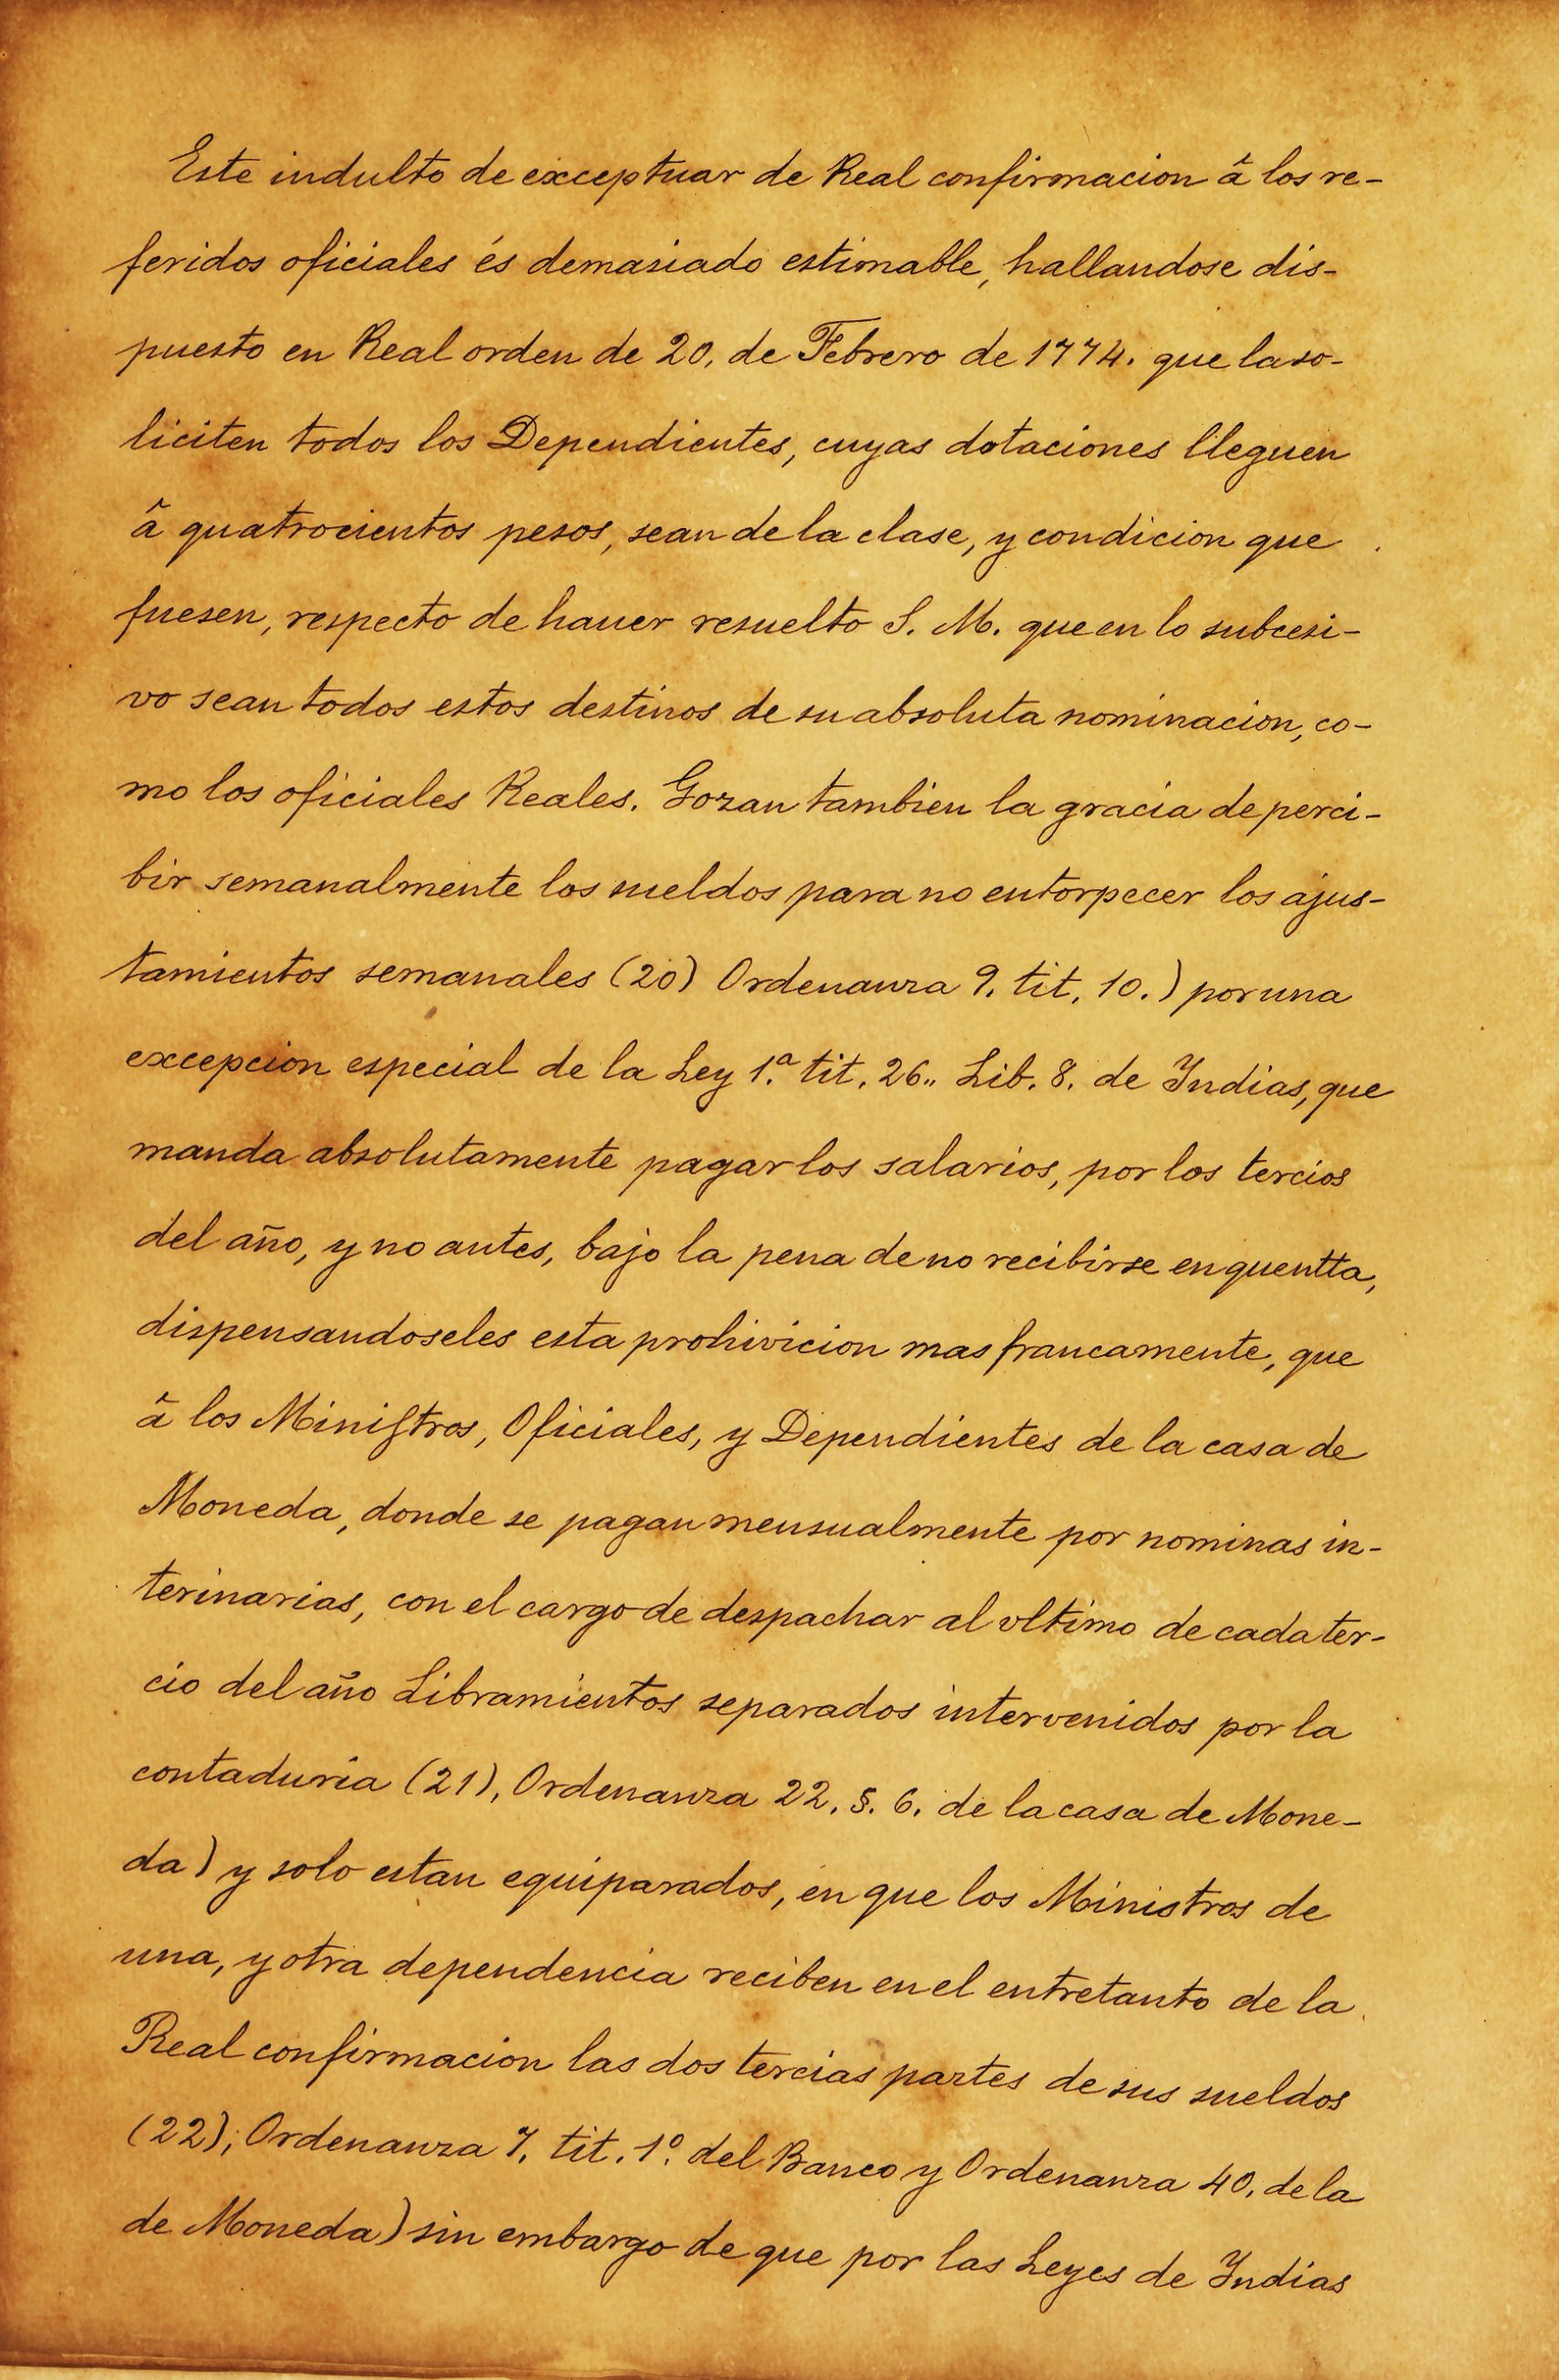 Este indulto de exceptuar de Real confirmacion â los re-
feridos oficiales és demasiado estimable, hallandose dis-
puesto en Real orden de 20. de Febrero de 1774. que la so-
liciten todos los Dependientes, cuyas dotaciones lleguen
â quatrocientos pesos, sean de la clase, y condicion que
fuesen, respecto de hauer resuelto S. M. que en lo subcesi-
vo sean todos estos destinos de su absoluta nominacion, co-
mo los oficiales Reales. Gozan tambien la gracia de perci-
bir semanalmente los sueldos para no entorpecer los ajus-
tamientos semanales (20) Ordenanza 9. tit. 10.) por una
excepcion especial de la Ley 1.ª tit. 26.. Lib. 8. de Yndias, que
manda absolutamente pagar los salarios, por los tercios
del año, y no antes, bajo la pena de no recibirse en quentta,
dispensandoseles esta prohivicion mas francamente, que
â los Miniſtros, Oficiales, y Dependientes de la casa de
Moneda, donde se pagan mensualmente por nominas in-
terinarias, con el cargo de despachar al vltimo de cada ter-
cio del año Libramientos separados intervenidos por la
contaduria (21), Ordenanza 22. §. 6. de la casa de Mone-
da) y solo estan equiparados, en que los Ministros de
una, y otra dependencia reciben en el entretanto de la
Real confirmacion las dos tercias partes de sus sueldos
(22); Ordenanza 7. tit. 1º. del Banco y Ordenanza 40. de la
de Moneda) sin embargo de que por las Leyes de Yndias